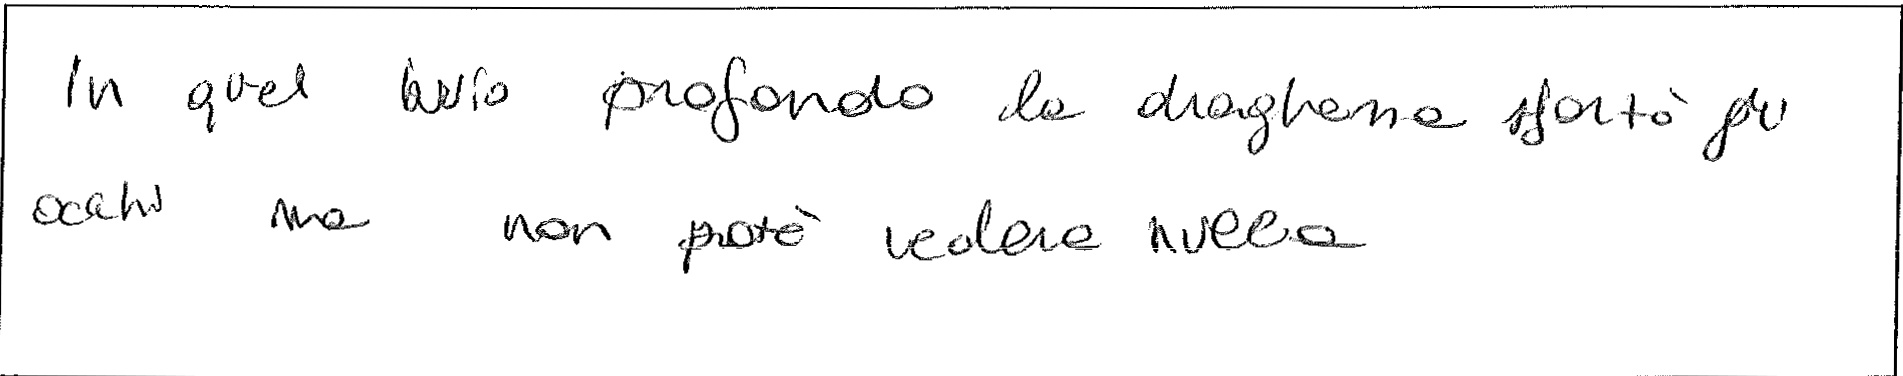 In quel buio profondo la draghessa sfortò gli
occhi ma non potè vedere nulla